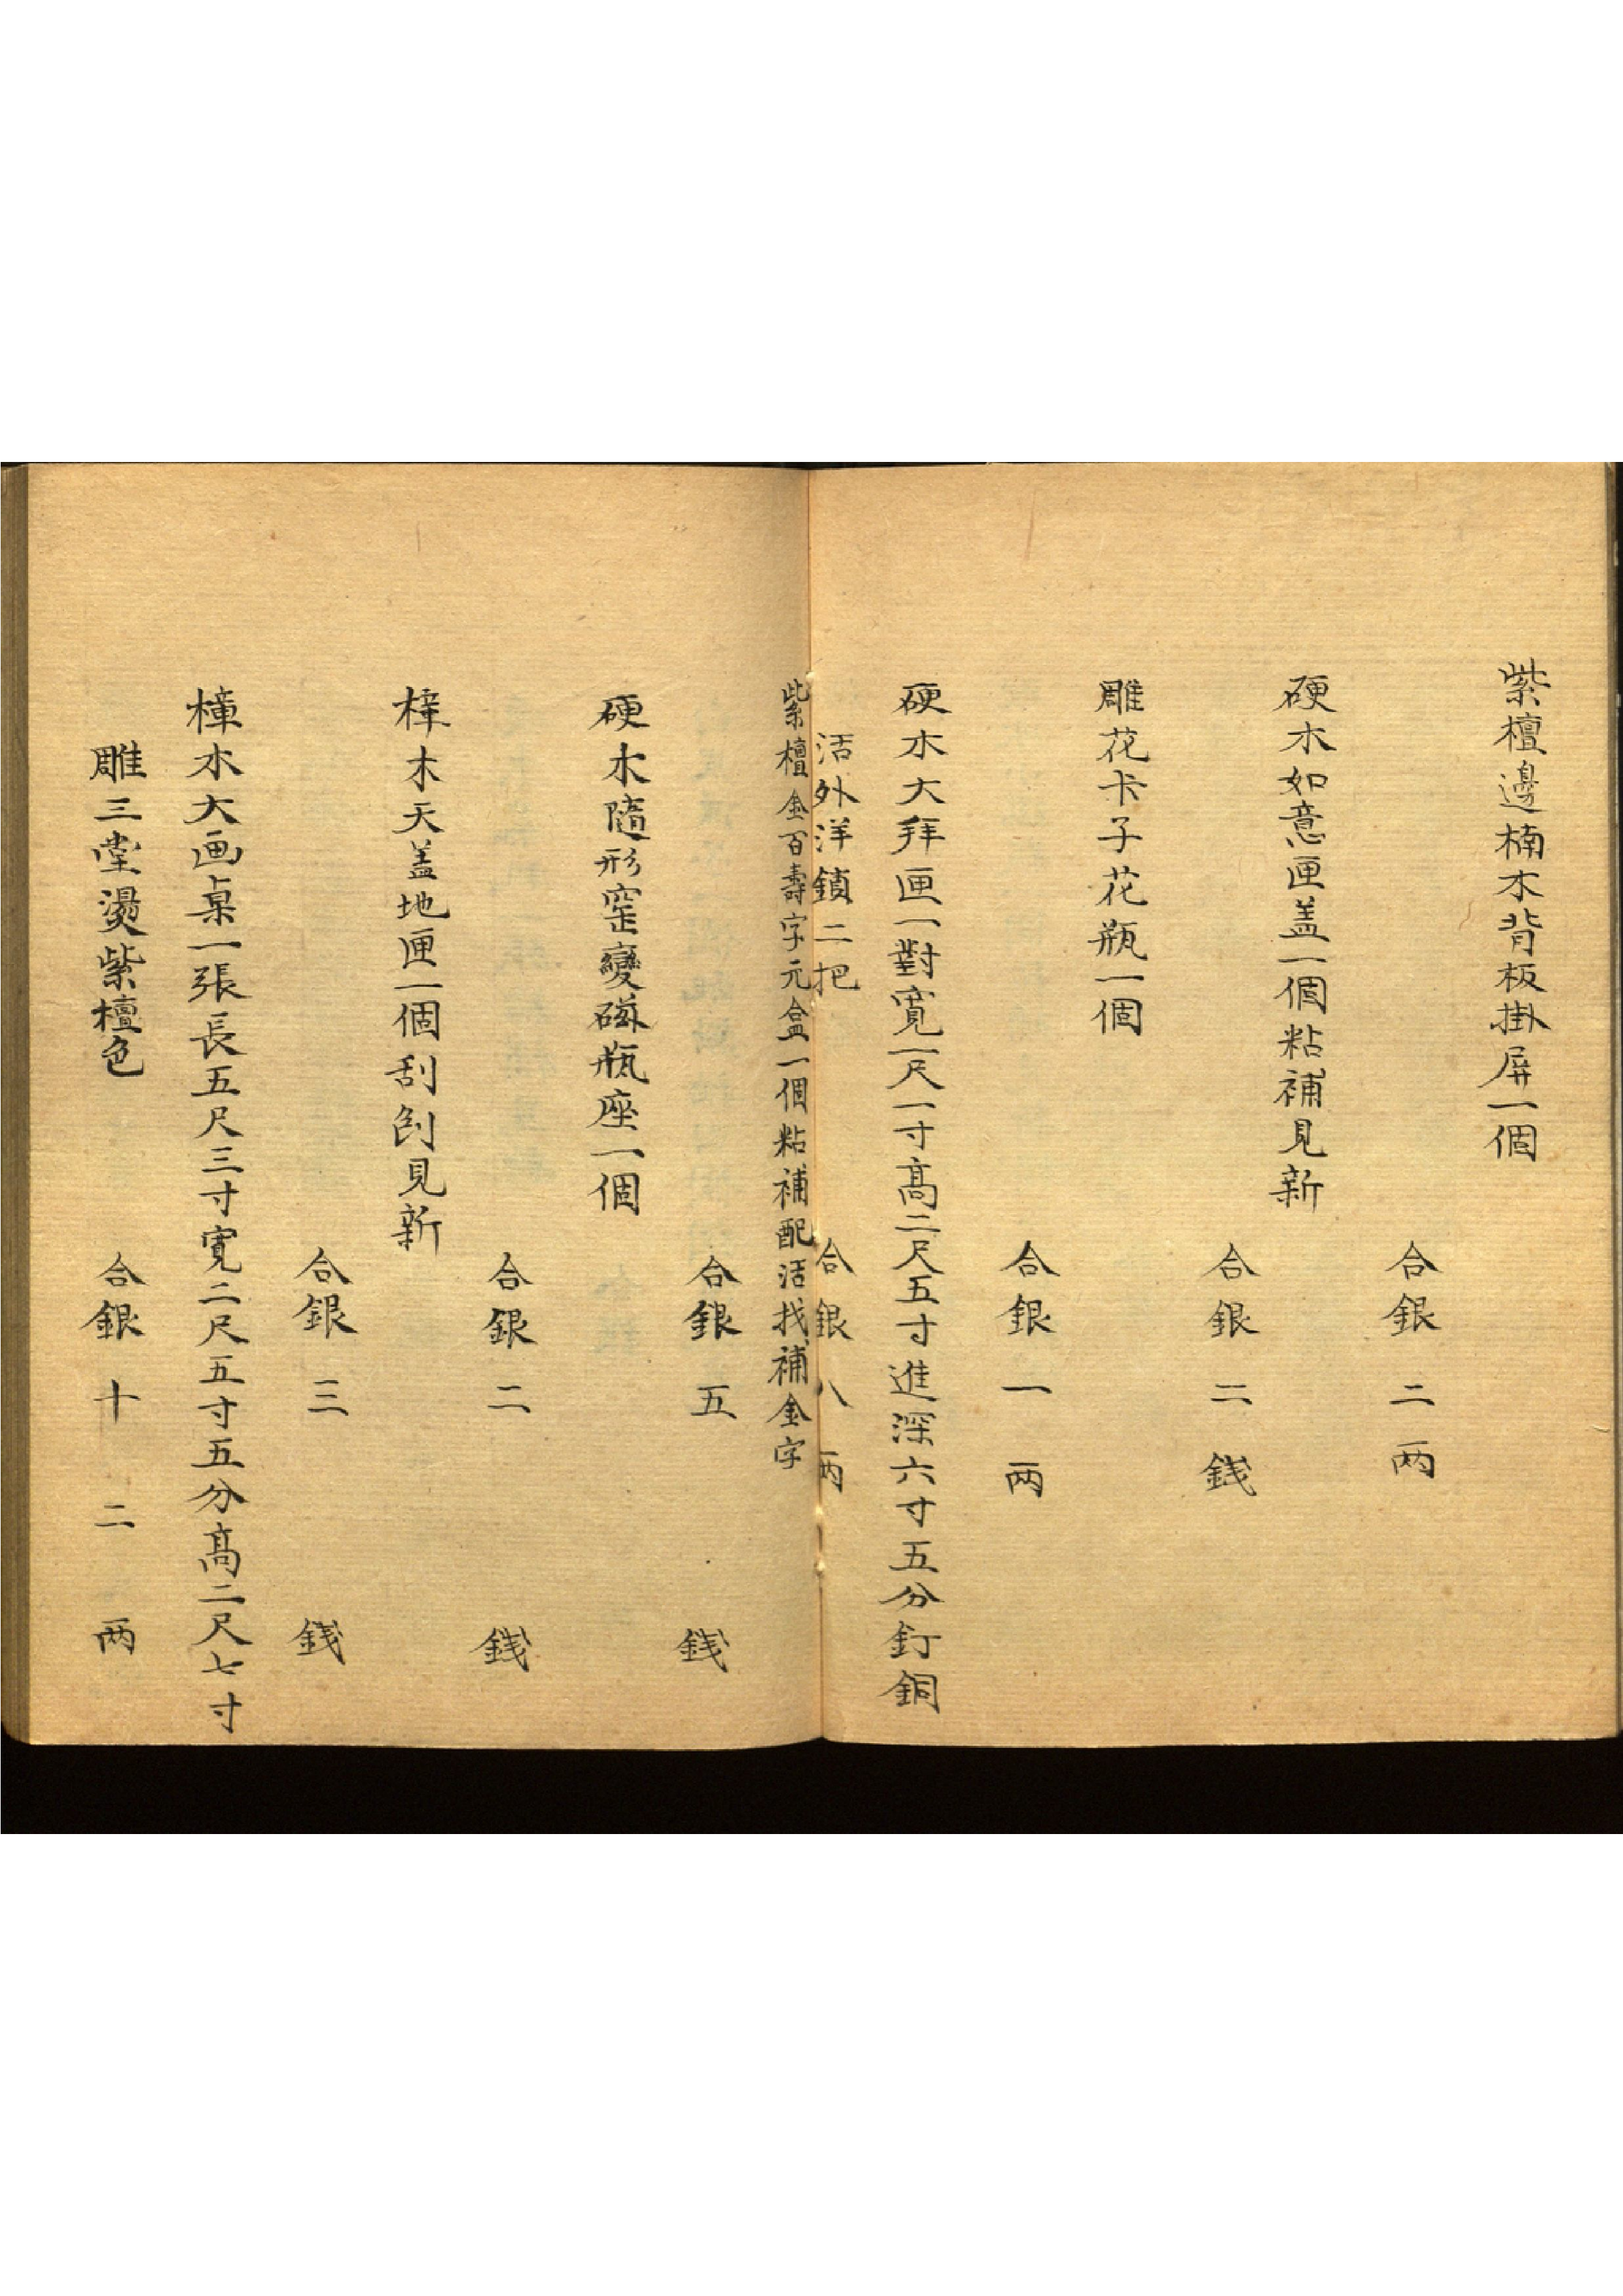 紫檀邊楠木背板掛屏一個
合銀二两
硬木如意匣盖一個粘補見新
合銀二銭
雕花卡子花瓶一個
合銀一两
硬木大拜匣一對寬一尺一寸髙二尺五寸進深六寸五分釘銅
活外洋鎖二把
合銀八两
紫檀金百壽字元盒一個粘補配活找補金字
合銀五銭
硬木隨形窑變磁瓶座一個
合銀二銭
樟木天盖地匣一個刮刨見新
合銀三銭
樟木大画桌一張長五尺三寸寬二尺五寸五分髙二尺七寸
雕三堂燙紫檀色
合銀十二两